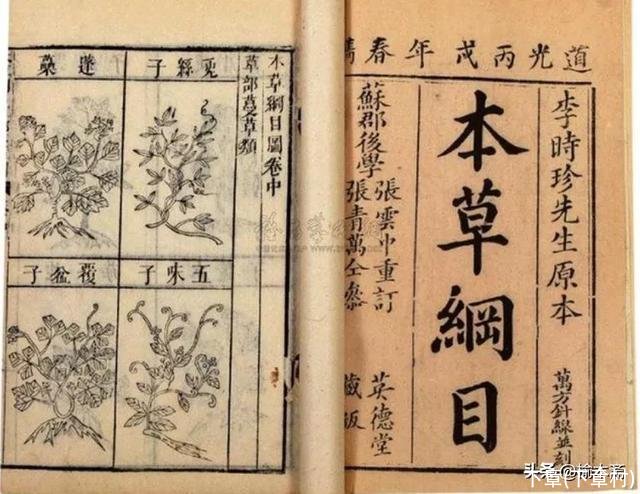 道光丙戌年春
李時珍先生原本
萬方針線並刻
本草綱目
蘇郡後學
張雲中重訂
張青萬仝參
英德堂
藏版
本草綱目圖卷中
草部蔓草類
兎絲子
蓬蔂
五味子
覆盆子
头条 @榆木斋
卞章(卞章村)